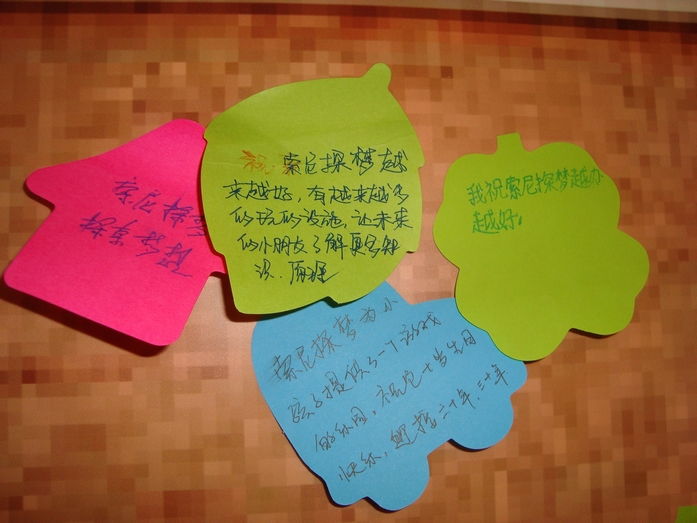 索尼探梦
探索梦想
祝：索尼探梦越
来越好，有越来越多
的玩的设施，让未来
的小朋友了解更多知
识、原理
我祝索尼探梦越办
越好！
索尼探梦为小
孩子提供了一个游戏
的乐园，祝它十岁生日
快乐，
二十年、三十年